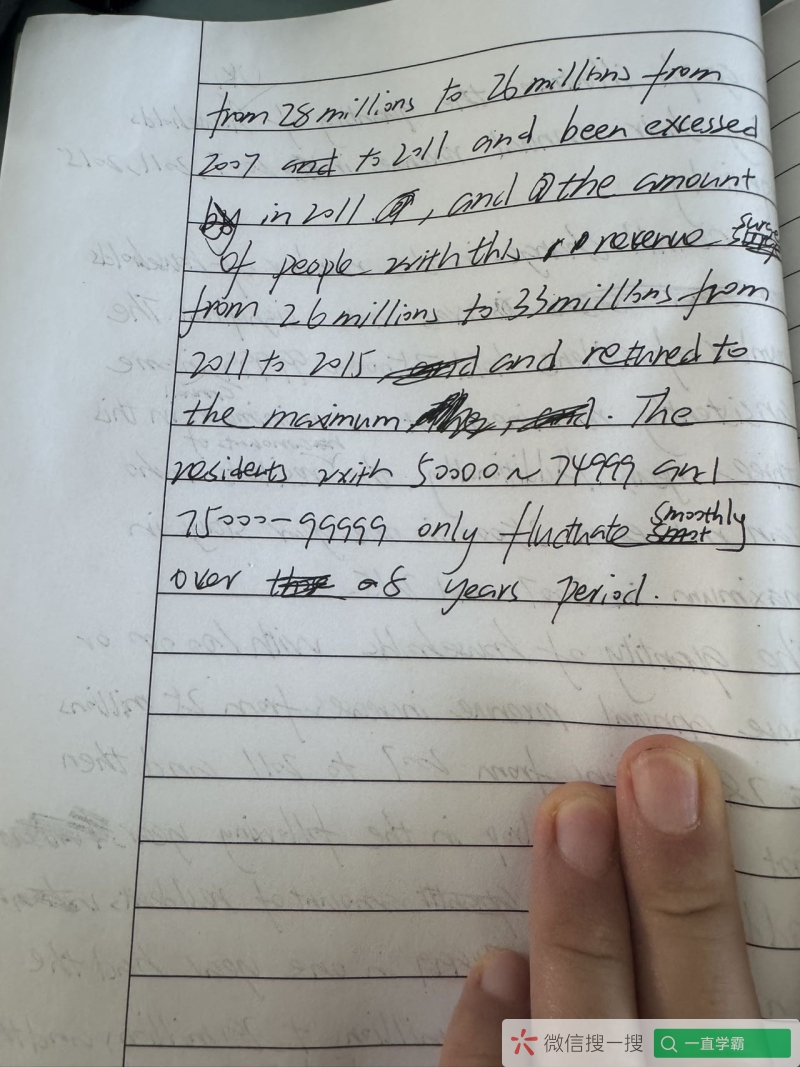 from 28 millions to 26 millions from
2007 and to 2011 and been excessed
by in 2011 , and the amount
of people with this revenue surge
from 26 millions to 33 millions from
2011 to 2015 and and retured to
the maximum , and. The
residents with 50000 ~ 74999 and
75000-99999 only fluctuate smoothly
over a 8 years period.
微信搜一搜
一直学霸